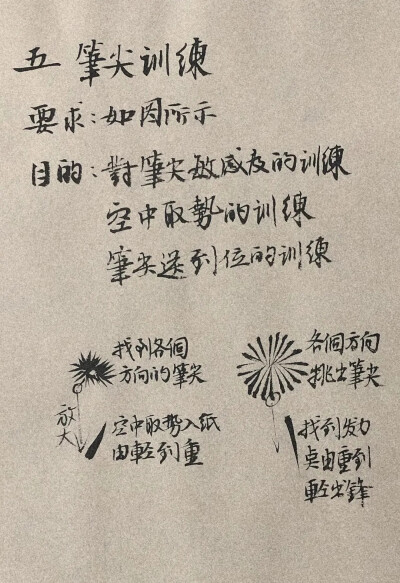 五 筆尖训練
要求:如图所示
目的:對筆尖敏感度的训練
空中取勢的训練
筆尖送到位的训練
找到各個
方向的筆尖
放大
空中取勢入纸
由輕到重
各個方向
挑出筆尖
找到发力
点由重到
輕出鋒